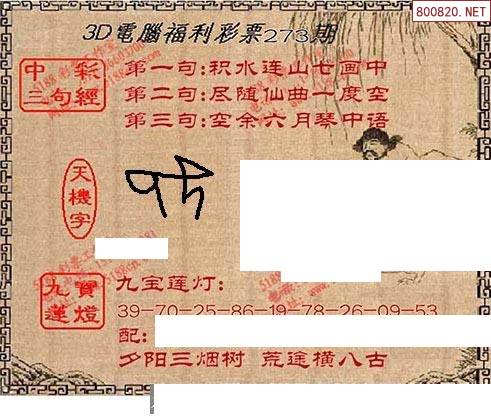 800820.NET
3D電腦福利彩票273期
中彩
三句經
第一句:积水连山七画中
第二句:尽随仙曲一度空
第三句:空余六月琴中语
天機字
九寶
蓮燈
九宝莲灯:
39-70-25-86-19-78-26-09-53
配:
夕阳三烟树 荒途横八古